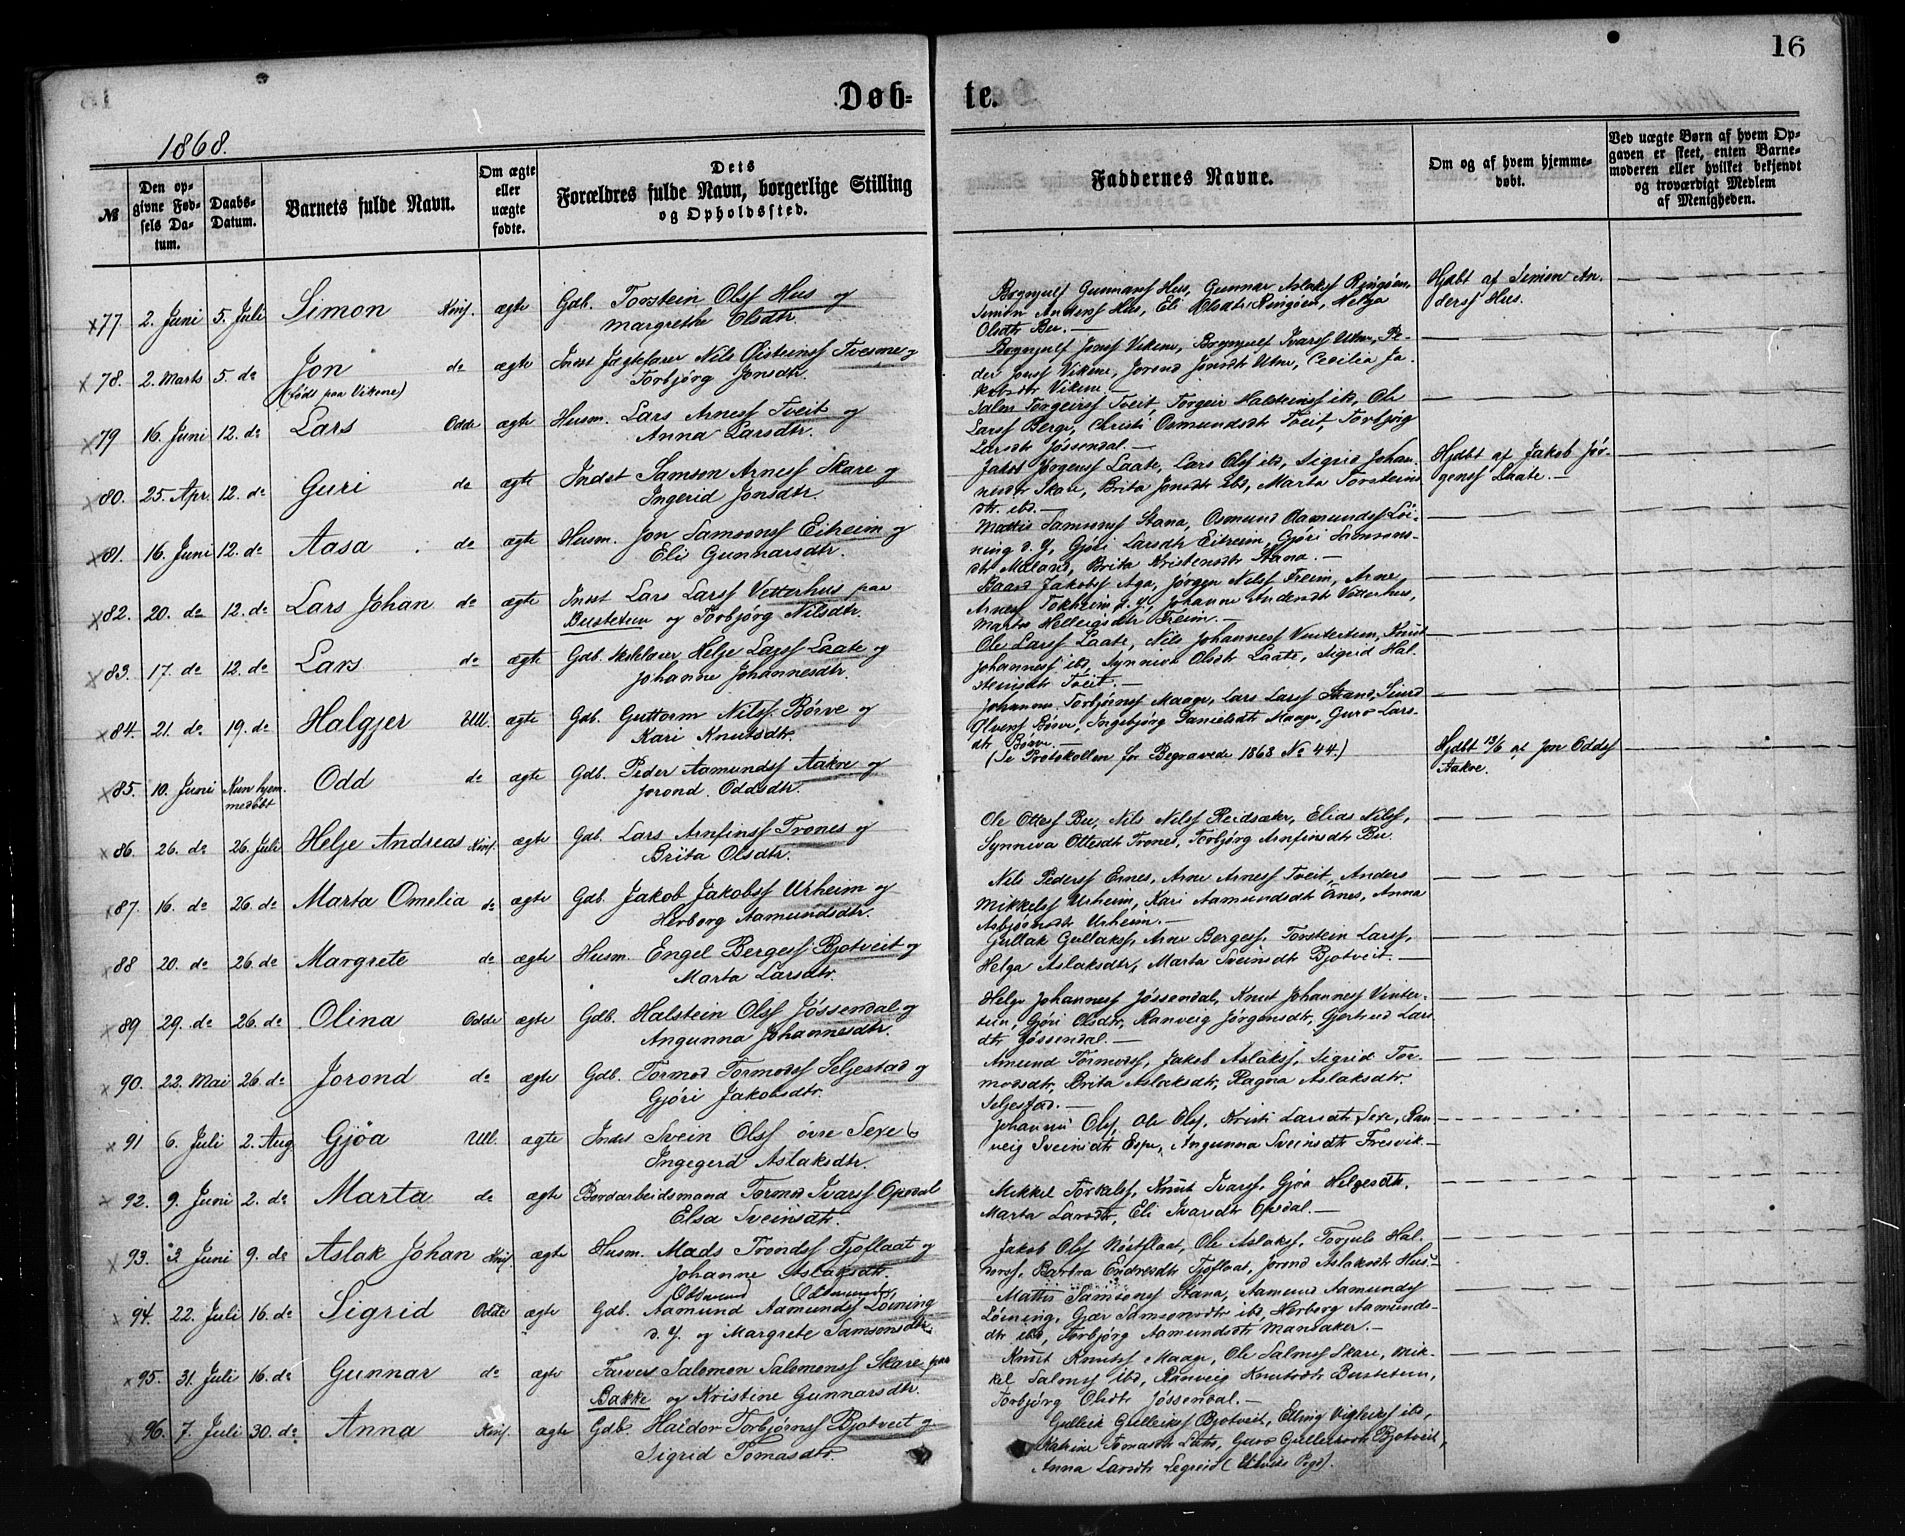 16
Døb- te.
1868.
№
Den opgivne Fødsels Datum.
Daabs-Datum.
Barnets fulde Navn.
Om ægte eller uægte fødte.
Dets Forældres fulde Navn, borgerlige Stilling og Opholdssted.
Faddernes Navne.
Om og af hvem hjemmedøbt.
Ved uægte Børn af hvem Opgaven er skeet, enten Barnemoderen eller hvilket bekjendt og troværdigt Medlem af Menigheden.
77 2. Juni 5. Juli Simon Kins. ægte Gdb. Torstein Olss Hus og
Margrethe Olsdtr.
Simon Anderss Hus, Eli Olsdtr Ringøen, Helga
Olsdtr Bu. —
Hjdbt af Simon An-
derss Hus.
78. 2. Marts 5. do Jon do ægte Indst Jægtefarer Nils Øisteinss Tvesme og
(født paa Vikene) Torbjørg Jonsdtr.
Brynjulf Jonss Vikene, Brynjulf Ivarss Utne, Pe-
der Jonss Vikene, Jorond Jonsdtr Utne, Cecilia Ja-
kobsdtr Vikene —
79 16. Juni 12. do Lars Odde ægte Husm. Lars Arness Tveit og
Anna Larsdtr.
Salm Torgeirss Tveit, Torgeir Halsteinss ib, Ole
Larss Berge, Christi Osmundsdtr Tveit, Torbjørg
Larsdtr Jøssendal —
80. 25. Apr. 12. do Guri do ægte Indst Samson Arness Skare og
Ingerid Jonsdtr.
Jakob Jørgenss Laate, Lars Olss ibd, Sigrid Johan-
nesdtr Skare, Brita Jonsdtr ibd, Marta Torsteins
dtr. ibd. —
Hjdbt af Jakob Jør-
genss Laate. —
81. 16. Juni 12. do Aasa do ægte Husm. Jon Samsonss Eitreim og
Eli Gunnarsdtr.
Mattis Samsonss Stana, Osmund Aamundss Løi-
ning d. Y, Gjøri Larsdtr Eitreim, Gjøri Samsons-
dtr Mæland, Brita Kristensdtr Stana. —
82. 20. do 12. do Lars Johan do ægte Indst Lars Larss Vetterhus paa
Bustetun og Torbjørg Nilsdtr.
Baard Jakobss Aga, Jørgen Nilss Freim, Arne
Arness Tokheim d. Y., Johanne Andersdtr Vetterhus,
Marta Helleigsdtr Freim. —
83. 17. do 12. do Lars do ægte Gdb. Helje Larss Laate og
Johanne Johannesdtr.
Ole Larss Laate, Nils Johanness Vintertun, Knut
Johanness ib, Synneva Olsdtr Laate, Sigrid Hal-
steinsdtr Tveit. —
84. 21. do 19. do Halgjer Ull. ægte Gdb. Guttorm Nilss Børve og
Kari Knutsdtr.
Johannes Torbjørnss Maage, Lars Larss Strand,
Børve, Ingebjørg Danielsdtr Maage, Guro Lars-
dtr Børve.
85. 10. Juni Kun hjem- Odd do ægte Gdb. Peder Aamundss Aakre og
medøbt Jorond Oddsdtr.
(Se Protokollen for Begravede 1868 No 44.)
Hjdbt 13/6 af Jon Oddss
Aakre.
86. 26. do 26. Juli Helje Andreas Kins. ægte Gdb. Lars Arnfinss Trones og
Brita Olsdtr.
Ole Ottess Bu, Nils Nilss Reidsæter, Elias Nilss,
Synneva Ottesdtr Trones, Torbjørg Arnfinsdtr Bu.
87. 16. do 26. do Marta Omelia do ægte Gdb. Jakob Jakobss Urheim og
Herborg Aamundsdtr.
Nils Pederss Ernes, Arne Arness Tveit, Anders
Mikkelss Urheim, Kari Aamundsdtr Ernes, Anna
Asbjørnsdtr Urheim. —
88 20. do 26. do Margrete do ægte Husm. Engel Bergess Bjotveit og
Marta Larsdtr.
Gullak Gullakss, Arne Bergess, Torstein Larss,
Helga Aslaksdtr, Marta Sveinsdtr Bjotveit. —
89 29. do 26. do Olina Odde ægte Gdb. Halstein Olss Jøssendal og
Angunna Johannesdtr.
Helge Johanness Jøssendal, Knut Johanness Vinter-
tun, Gjøri Olsdtr, Ranveig Jørgensdtr, Gjertrud Lars
dtr Jøssendal. —
90. 22. Mai 26. do Jorond do ægte Gdb. Tormod Tormodss Seljestad og
Gjøri Jakobsdtr.
Amund Tormodss, Jakob Aslakss, Sigrid Tor-
modsdtr, Brita Aslaksdtr, Ragna Aslaksdtr.
Seljestad. —
91 6. Juli 2. Aug Gjøa Ull. ægte Indst Svein Olss øvre Sexe og
Ingegerd Aslaksdtr.
Johannes Olss, Ole Olss, Kristi Larsdtr Sexe, Ran-
veig Sveinsdtr Espe, Angunna Sveinsdtr Fresvik. —
92. 9. Juni 2. do Marta do ægte Bordarbeidsmand Tormod Ivarss Opedal
Elsa Sveinsdtr.
Mikkel Torkelss, Knut Ivarss, Gjøa Helgesdtr,
Marta Larsdtr, Eli Ivarsdtr Opedal. —
93. 3 Juni 9. do Aslak Johan Kins ægte Husm. Mads Trondss Tjoflaat og
Johanne Aslaksdtr.
Jakob Olss, Ole Aslakss, Torjuls Hal-
Endresdtr Tjoflaat, Jorond Aslaksdtr Hus —
94. 22. Juli 16. do Sigrid Odde ægte Gdb. Aamund Aamundss Løining
Osmund Osmundss
d. Y. og Margrete Samsonsdtr
Mattis Samsonss Stana, Aamund Aamundss
Løining, Samsonsdtr ibd, Herborg Aamunds-
dtr ibd, Torbjørg Aamundsdtr Mansaker. —
95. 31. Juli 16. do Gunnar do ægte Farver Salomon Salomonss Skare paa
Bakke og Kristine Gunnarsdtr.
Knut Knutss Maage, Ole Salmss Skare, Mik-
kel Salmss ibd, Ranveig Knutsdtr Bustetun,
Torbjørg Olsdtr Jøssendal. —
96. 7. Juli 30. do Anna Kins. ægte Gdb. Haldor Torbjørnss Bjotveit og
Sigrid Tomasdtr.
Gulleik Gulleikss Bjotveit, Elling Vigleikss ibd,
Katrine Tomasdtr Lote, Guro Gulleiksdtr Bjotveit,
Anna Larsdtr Legreid